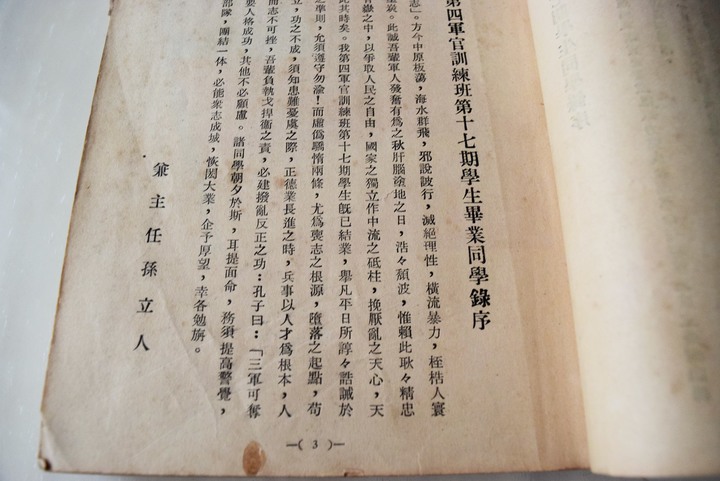 第四軍官訓練班第十七期學生畢業同學錄序
志」。方今中原板蕩，海水群飛，邪說詖行，滅絕理性，橫流暴力，桎梏人寰
炭。此誠吾輩軍人發奮有為之秋肝腦塗地之日，浩々頹波，惟賴此耿々精忠
音嶽之中，以爭取人民之自由，國家之獨立作中流之砥柱，挽厭亂之天心，天
此其時矣。我第四軍官訓練班第十七期學生旣已結業，舉凡平日所諄々誥誡於
之準則，允須遵守勿渝！而虛僞驕惰兩條，尤爲喪志之根源，墮落之起點，苟
立，功之不成，須知患難憂虞之際，正德業長進之時，兵事以人才爲根本，人
而志不可挫，吾輩負執戈捍衞之責，必建撥亂反正之功：孔子曰：「三軍可奪
要人格成功，其他不必顧慮。諸同學朝夕於斯，耳提面命，務須提高警覺，
部隊，團結一体，必能衆志成城，恢閎大業，企予厚望，幸各勉旃。
兼主任孫立人
—( 3 )—